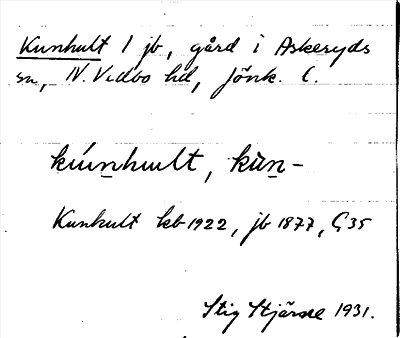 Kunhult 1 jb, gård i Askeryds
sn, N. Vedbo hd, Jönk. l.
kúṉhult, kùṉ-
Kunhult kb 1922, jb 1877, G 35
Stig Stjärne 1931.